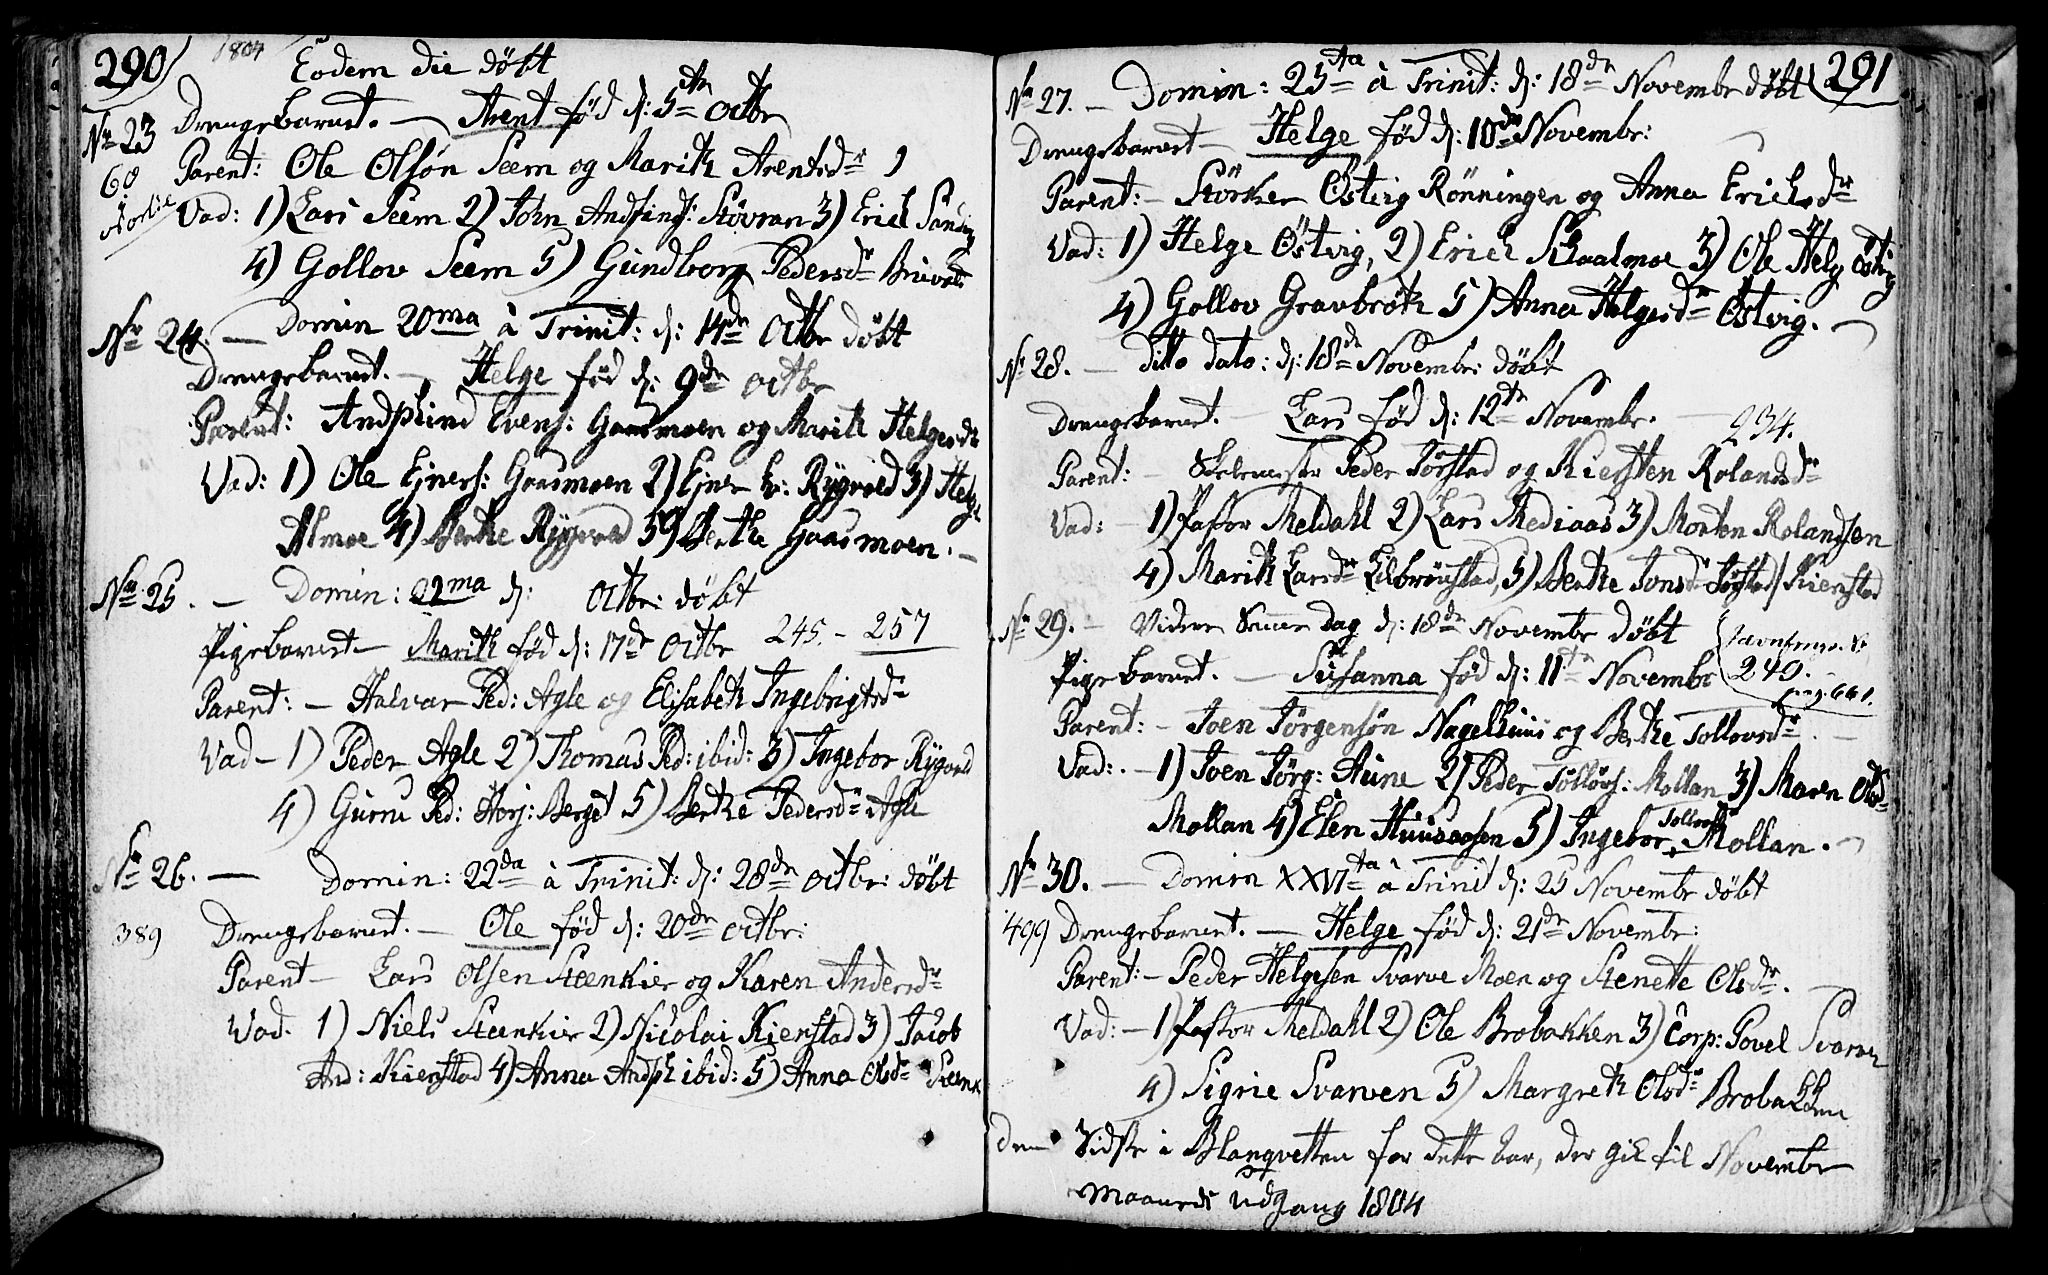 290
1804
Eodem die döbt
Nr 23 Drengebarnet. — Arent fød d: 5te Octbr
60 Parent: Ole Olsön Seem og Marith Arentsdr
Vad: 1) Lars Seem 2) John Andfinds: Stövran 3) Erich
4) Gollov Seem 5) Gundborg Pedersdr
Nr 24. — Domin 20ma à Trinit: d: 14de Octbr döbt
Drengebarnet. — Helge fød d: 9de Octbr
Parent: Andphind Evens: Gaasmoen og Marith Helgesdr
Vad: 1) Ole Ejners: Gaasmoen 2) Ejner Rygvold 3) Helge
Almoe 4) Berthe Rygvold 5) Berthe Gaasmoen. —
Nr 25. — Domin: 22ma d: Octbr: döbt
Pigebarnet — Marith fød d: 17de Octbr 245. — 257
Parent: — Halvar Ped: Agle og Elisabeth Ingebrigtsdr
Vad — 1) Peder Agle 2) Thomas Ped: ibid: 3) Ingebor Rygvold
4) Guru Ped: Horj: Berget 5) Berthe Pedersdr Agle
Nr 26. — Domin: 22da à Trinit: d: 28de Octbr: döbt
389 Drengebarnet. — Ole fød d: 20de Octbr:
Parent — Lars Olsen Steenkier og Karen Andersdr
Vad. 1) Niels Steenkier 2) Nicolai Kierstad 3) Jacob
And: Kierstad 4) Anna Andph ibid: 5) Anna Olsdr Steenk
291
Nr 27. — Domin: 25ta à Trinit: d: 18de Novembr döbt
Drengebarnet — Helge fød d: 10de Novembr:
Parent: — Störker Östvig Rönningen og Anna Erichsdr
Vad: 1) Helge Östvig, 2) Erich Klaalmoe 3) Ole Helg Östvig
4) Gollov Gravbrök 5) Anna Helgesdr Östvig. —
Nr 28. — ditto dato: d: 18de Novembr: döbt
Drengebarnet. — Lars fød d: 12te Novembr. — 234.
Parent: — Skolemester Peder Förstad og Kiersten Rolandsdr
Vad: — 1) Pastor Meldahl 2) Lars Mediaas 3) Morten Rolandsen
4) Marith Larsdr 5) Berthe Jonsdr Kierstad
Nr 29. — Videre Samme Dag d: 18de Novembr döbt
Pigebarnet. — Susanna fød d: 11te Novembr 240.
pag. 661.
Parent: — Joen Jörgensön Nagelhuus og Berthe Tollovsdr. —
Vad: — 1) Joen Jörg: Aune 2) Peder Tollövs: Mollan 3) Maren Olsdr
Mollan 4) Elen Huusaasen 5) Ingebor Tollovsd Mollan. —
Nr 30. — Domin XXVIta à Trinit d: 25 Novembr döbt
499 Drengebarnet. — Helge fød d: 21de Novembr:
Parent: — Peder Helgesen Svarve Moen og Stenette Olsdr.
Vad: — 1) Pastor Meldahl 2) Ole Brobakken 3) Corp: Povel Svarve
4) Sigrie Svarven 5) Margreth Olsdr Brobakken
den Sidste i Blanqvetten for dette Aar, der gik til November
Maaneds Udgang 1804